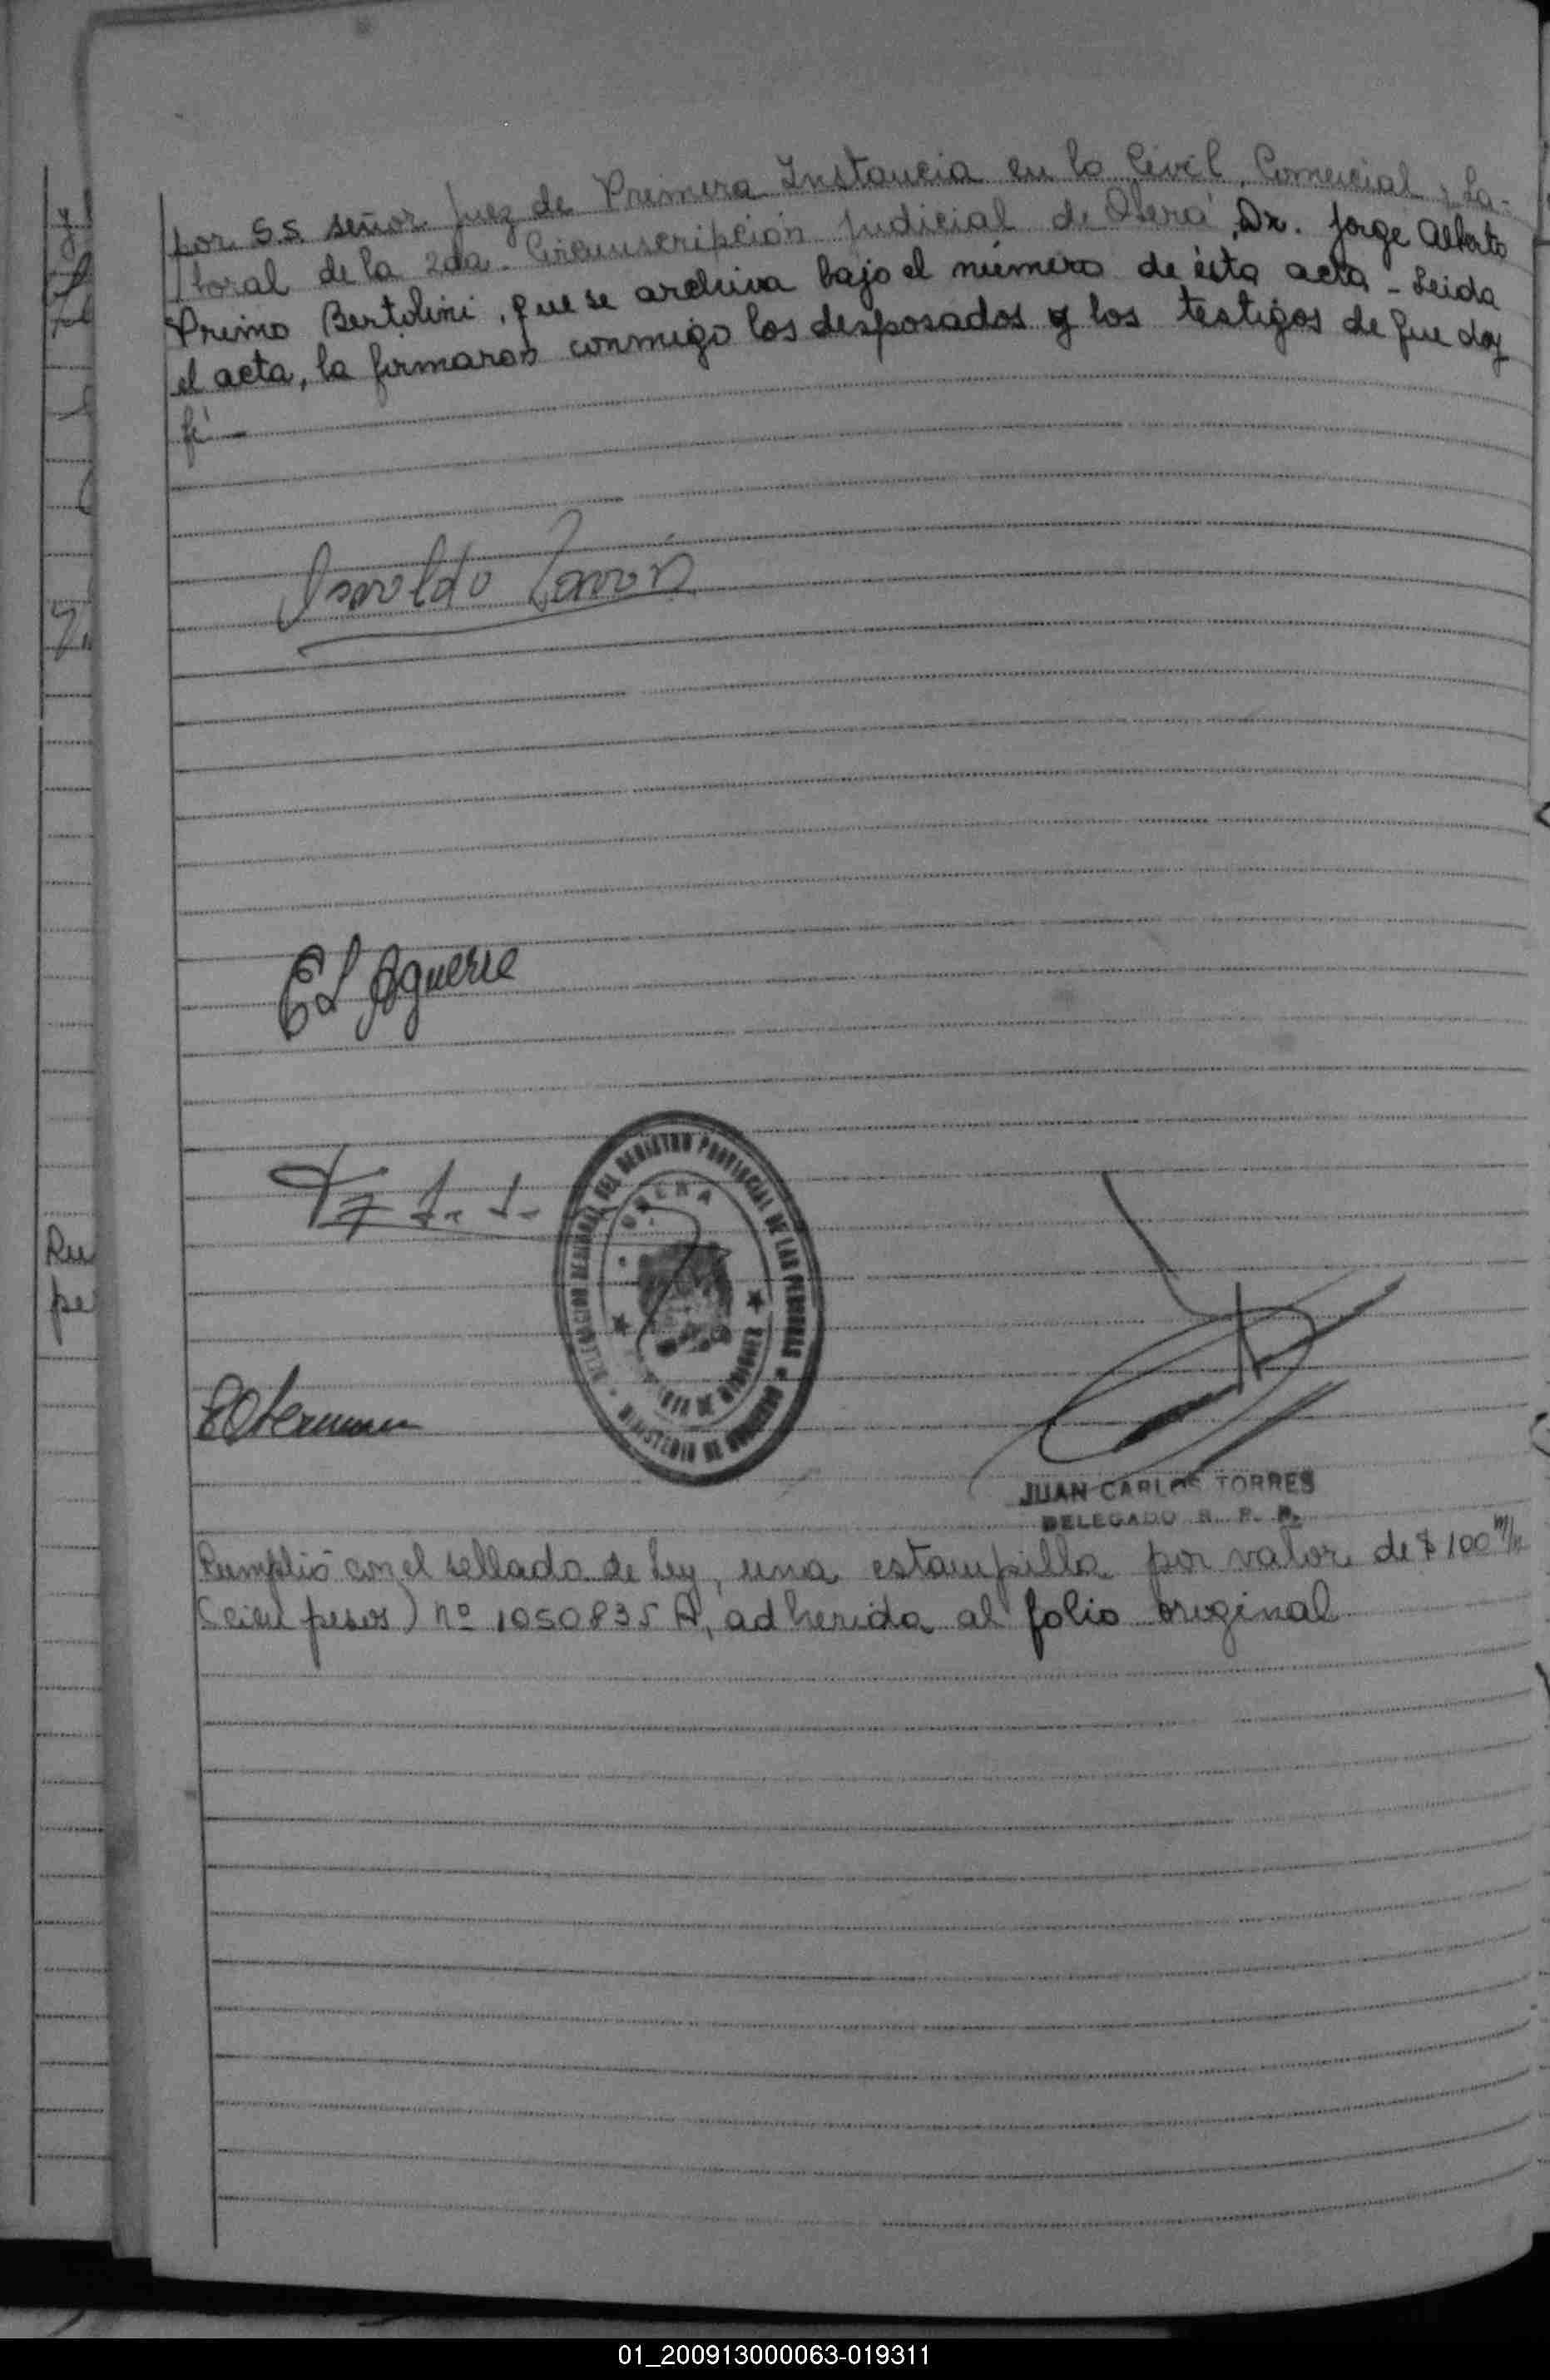 por S.S. señor Juez de Primera Instancia en lo Civil, Comercial y La-
boral de la 2da. Circunscripción Judicial de Oberá, Dr. Jorge Alberto
Primo Bertolini, que se archiva bajo el número de ésta acta - Leida
el acta, la firmaron conmigo los desposados y los testigos de que doy
fé -
E L Aguerre
DELEGACION REGIONAL DEL REGISTRO PROVINCIAL DE LAS PERSONAS
MINISTERIO DE GOBIERNO
OBERA
MISIONES
JUAN CARLOS TORRES
DELEGADO R. P. P.
Cumplió con el sellado de Ley, una estampilla por valor de $ 100 m/n
(cien pesos) nº 1050835 A, adherida al folio original
Ru
pe
01_200913000063-019311